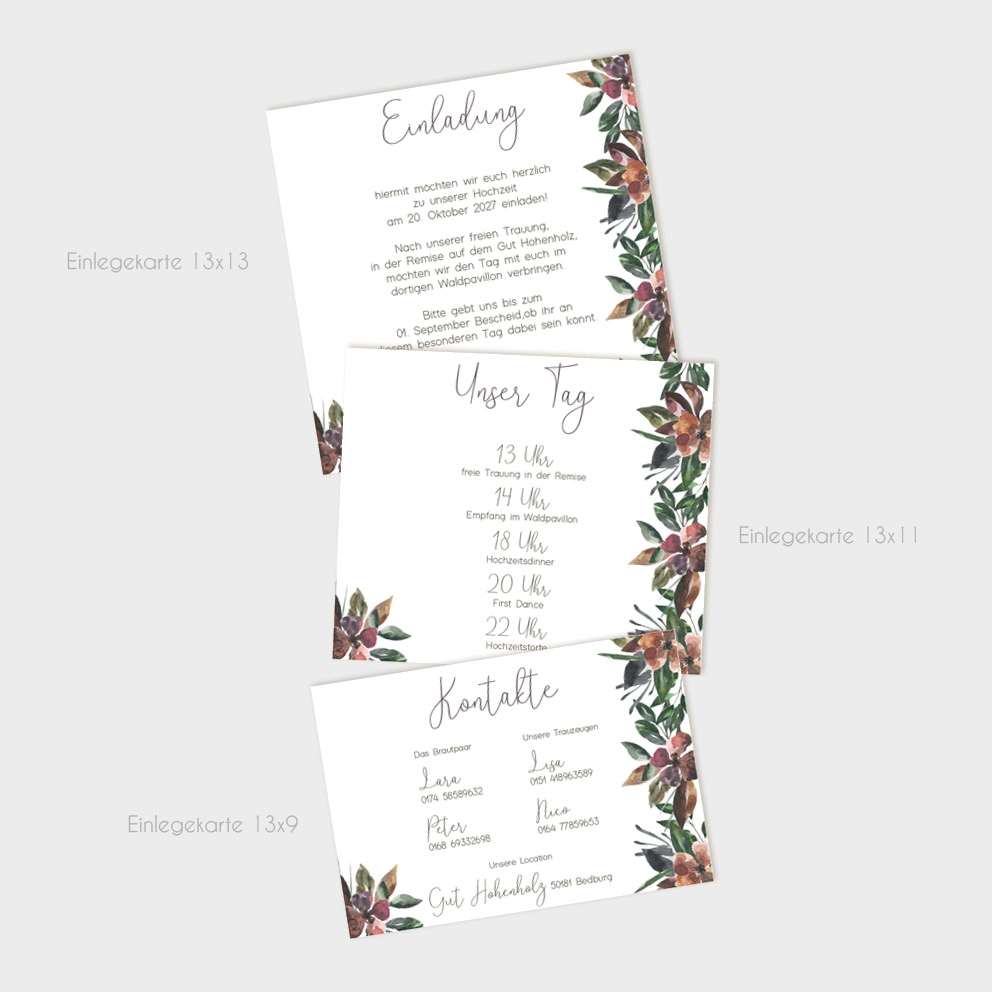 Einladung
hiermit möchten wir euch herzlich
zu unserer Hochzeit
am 20. Oktober 2027 einladen!
Nach unserer freien Trauung,
in der Remise auf dem Gut Hohenholz,
möchten wir den Tag mit euch im
dortigen Waldpavillon verbringen.
Bitte gebt uns bis zum
01. September Bescheid,ob ihr an
diesem besonderen Tag dabei sein könnt.
Einlegekarte 13x13
Unser Tag
13 Uhr
freie Trauung in der Remise
14 Uhr
Empfang im Waldpavillon
18 Uhr
Hochzeitsdinner
20 Uhr
First Dance
22 Uhr
Hochzeitstorte
Einlegekarte 13x11
Kontakte
Das Brautpaar
Lara
0174 58589632
Peter
0168 69332698
Unsere Trauzeugen
Lisa
0151 418963589
Nico
0164 77859653
Unsere Location
Gut Hohenholz 50181 Bedburg
Einlegekarte 13x9